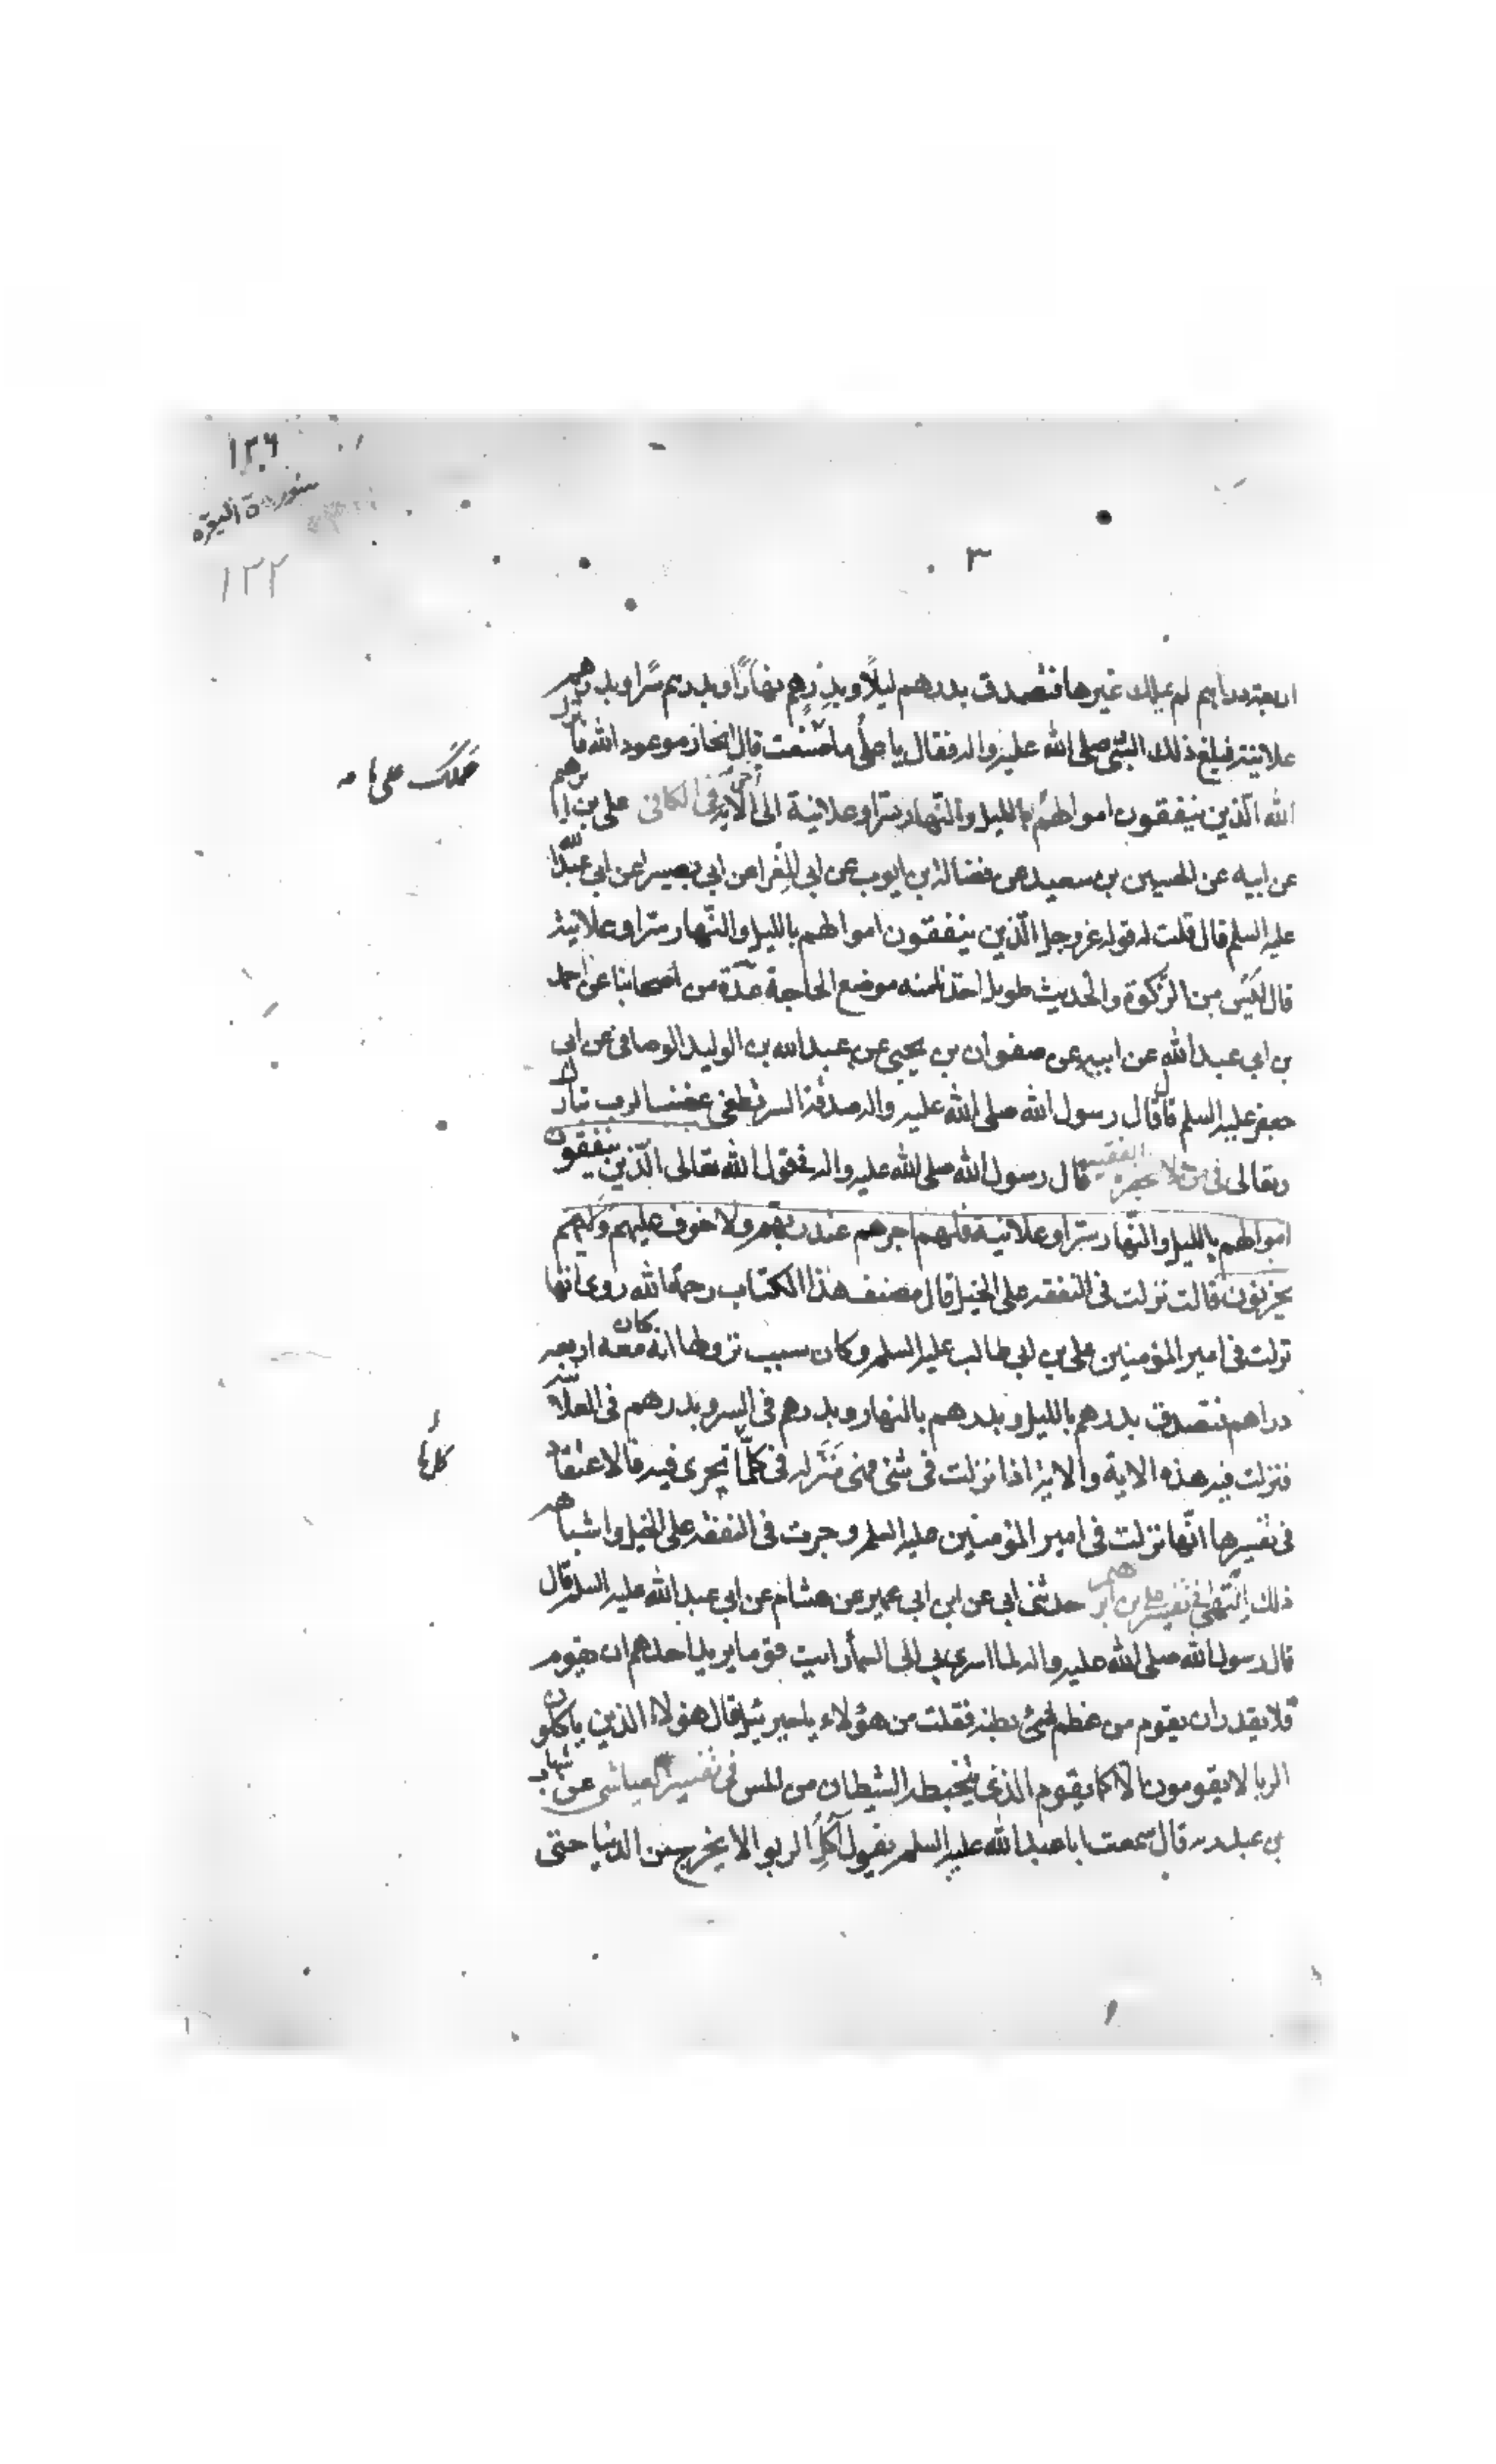 ١٣٦
سورة البقرة
١٢٢
٣
اربعة دراهم لم يملك غيرها فتصدق بدرهم ليلًا وبدرهم نهارًا وبدرهم سرًا وبدرهم
علانية فبلغ ذلك النبي صلى الله عليه واله فقال يا علي ما حملك على ما صنعت قال انجاز موعود الله فانزل
الله الذين ينفقون اموالهم بالليل والنهار سرا وعلانية الى اخر الاية في الكافي علي بن ابرهيم
عن ابيه عن الحسين بن سعيد عن فضالة بن ايوب عن ابي المغرا عن ابي بصير عن ابي عبد الله
عليه السلم قال قلت له قوله عز وجل الذين ينفقون اموالهم بالليل والنهار سرا وعلانية
قال ليس من الزكوة والحديث طويل اخذنا منه موضع الحاجة عدة من اصحابنا عن احمد
بن ابي عبد الله عن ابيه عن صفوان بن يحيى عن عبد الله بن الوليد الوصافي عن ابي
جعفر عليه السلم قال قال رسول الله صلى الله عليه واله صدقة السر تطفئ غضب الرب تبارك
وتعالى في من لا يحضره الفقيه قال رسول الله صلى الله عليه واله في قول الله تعالى الذين ينفقون
اموالهم بالليل والنهار سرا وعلانية فلهم اجرهم عند ربهم ولا خوف عليهم ولا هم
يحزنون قالت نزلت في النفقة على الخيل قال مصنف هذا الكتاب رحمه الله روى انها
نزلت في امير المؤمنين علي بن ابي طالب عليه السلم وكان سبب نزولها انه كان معه اربعة
دراهم فتصدق بدرهم بالليل وبدرهم بالنهار وبدرهم في السر وبدرهم في العلانية
فنزلت فيه هذه الاية والاية اذا نزلت في شئ فهي منزلة في كلما تجري فيه فالاعتقاد
في تفسيرها انها نزلت في امير المؤمنين عليه السلم وجرت في النفقة على الخيل واشباه
ذلك انتهى في تفسير علي بن ابرهيم حدثني ابي عن ابن ابي عمير عن هشام عن ابي عبد الله عليه السلم قال
قال رسول الله صلى الله عليه واله لما اسري بي الى السماء رايت قوما يريد احدهم ان يقوم
فلا يقدر ان يقوم من عظم بطنه فقلت من هؤلاء يا جبرئيل قال هؤلاء الذين ياكلون
الربا لا يقومون الا كما يقوم الذي يتخبطه الشيطان من المس في تفسير العياشي عن شهاب
بن عبد ربه قال سمعت ابا عبد الله عليه السلم يقول آكل الربوا لا يخرج من الدنيا حتى
حملك على ما
كلما